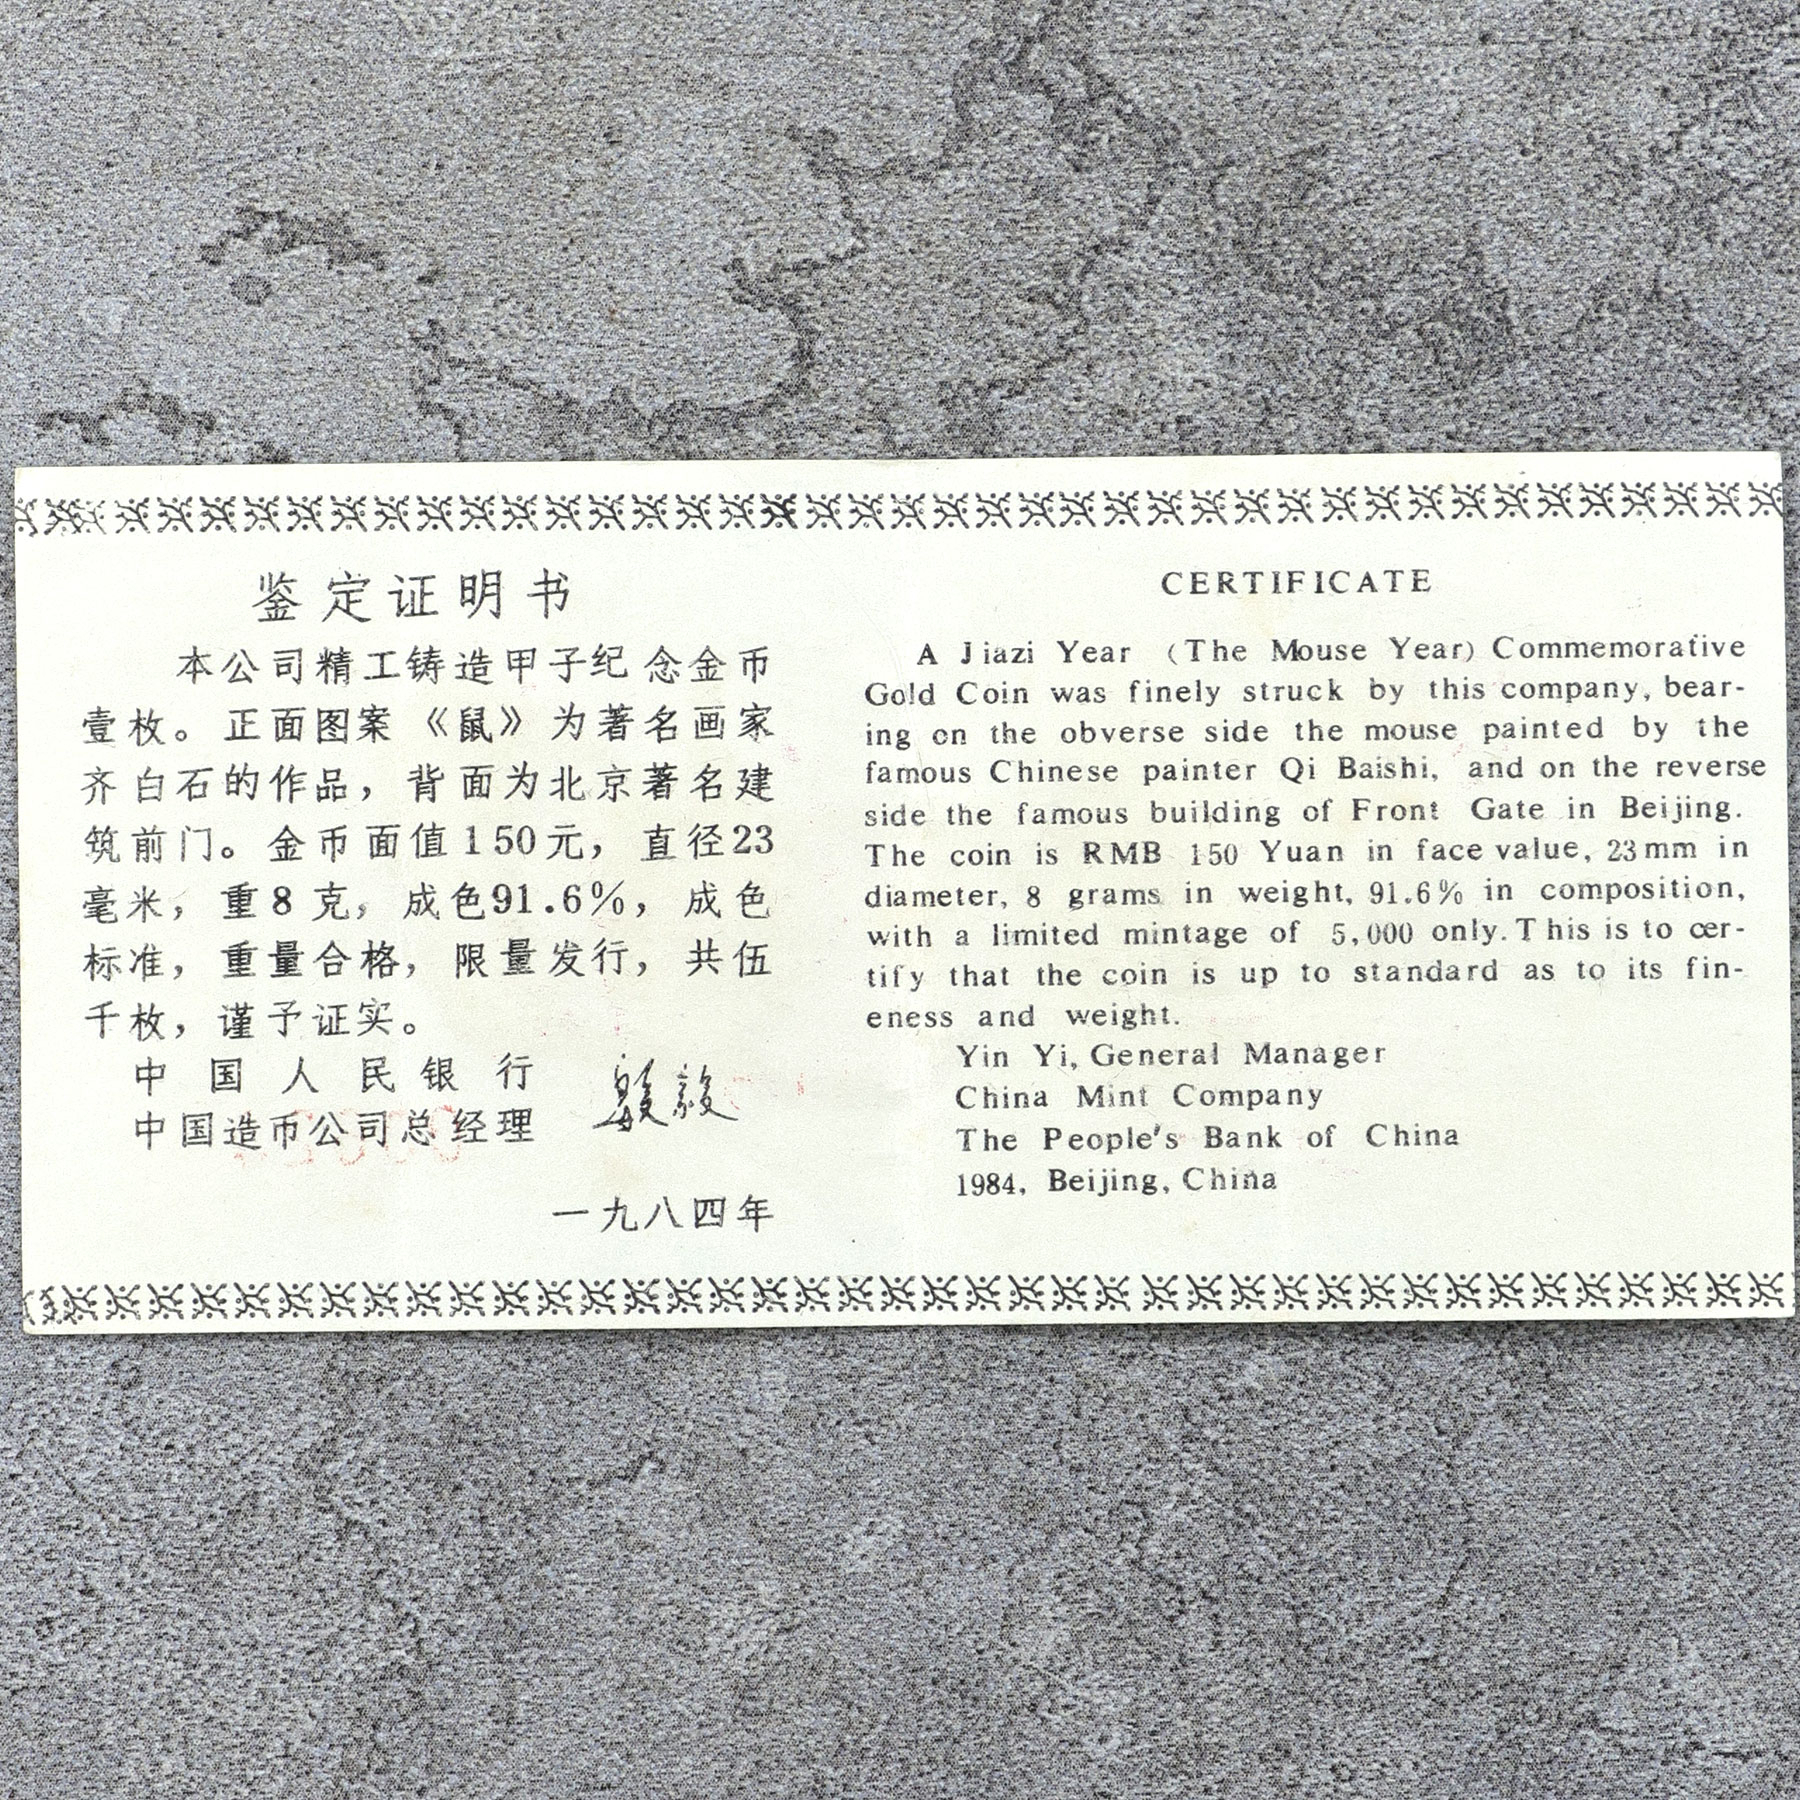 鉴定证明书
本公司精工铸造甲子纪念金币
壹枚。正面图案《鼠》为著名画家
齐白石的作品，背面为北京著名建
筑前门。金币面值150元，直径23
毫米，重8克，成色91.6%，成色
标准，重量合格，限量发行，共伍
千枚，谨予证实。
中国人民银行
中国造币公司总经理
一九八四年
CERTIFICATE
A Jiazi Year (The Mouse Year) Commemorative
Gold Coin was finely struck by this company, bear-
ing on the obverse side the mouse painted by the
famous Chinese painter Qi Baishi, and on the reverse
side the famous building of Front Gate in Beijing.
The coin is RMB 150 Yuan in face value, 23mm in
diameter, 8 grams in weight, 91.6% in composition,
with a limited mintage of 5,000 only. This is to cer-
tify that the coin is up to standard as to its fin-
eness and weight.
Yin Yi, General Manager
China Mint Company
The People's Bank of China
1984, Beijing, China